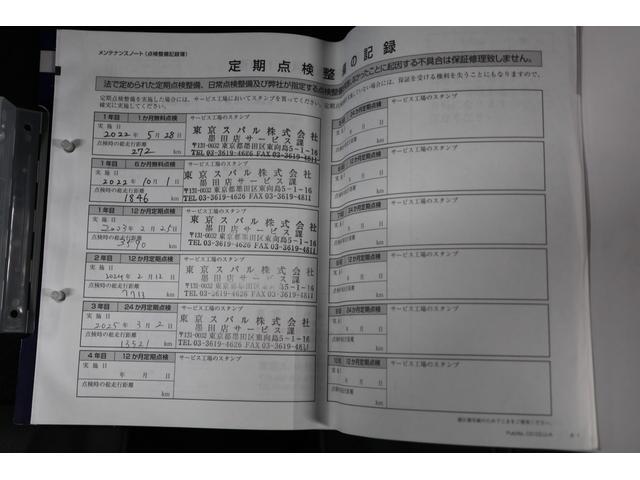 メンテナンスノート(点検整備記録簿)
定期点検整備の記録
法で定められた定期点検整備、日常点検整備及び弊社が指定する点検整備
なかったことに起因する不具合は保証修理致しません。
定期点検整備を実施した場合には、サービス工場においてスタンプを貰ってください。
確実に実施してください。
ていない場合には、保証を受ける権利を失うことにもなりますので、
1年目 1か月無料点検
サービス工場のスタンプ
実施日
2022年 5月 28日
点検時の総走行距離
272 km
東京スバル株式会社
墨田店サービス課
〒131-0032 東京都墨田区東向島5-1-16
TEL 03-3619-4626 FAX 03-3619-4811
1年目 6か月無料点検
サービス工場のスタンプ
実施日
2022年 10月 1日
点検時の総走行距離
1846 km
東京スバル株式会社
墨田店サービス課
〒131-0032 東京都墨田区東向島5-1-16
TEL 03-3619-4626 FAX 03-3619-4811
1年目 12か月定期点検
サービス工場のスタンプ
実施日
2023年 2月 25日
点検時の総走行距離
3590 km
東京スバル株式会社
墨田店サービス課
〒131-0032 東京都墨田区東向島5-1-16
TEL 03-3619-4626 FAX 03-3619-4811
2年目 12か月定期点検
サービス工場のスタンプ
実施日
2024年 2月 12日
点検時の総走行距離
7713 km
東京スバル株式会社
墨田店サービス課
〒131-0032 東京都墨田区東向島5-1-16
TEL 03-3619-4626 FAX 03-3619-4811
3年目 24か月定期点検
サービス工場のスタンプ
実施日
2025年 3月 2日
点検時の総走行距離
13521 km
東京スバル株式会社
墨田店サービス課
〒131-0032 東京都墨田区東向島5-1-16
TEL 03-3619-4626 FAX 03-3619-4811
4年目 12か月定期点検
サービス工場のスタンプ
実施日
年 月 日
点検時の総走行距離
km
サービス工場のスタンプ
サービス工場のスタンプ
サービス工場のスタンプ
サービス工場のスタンプ
サービス工場のスタンプ
サービス工場のスタンプ